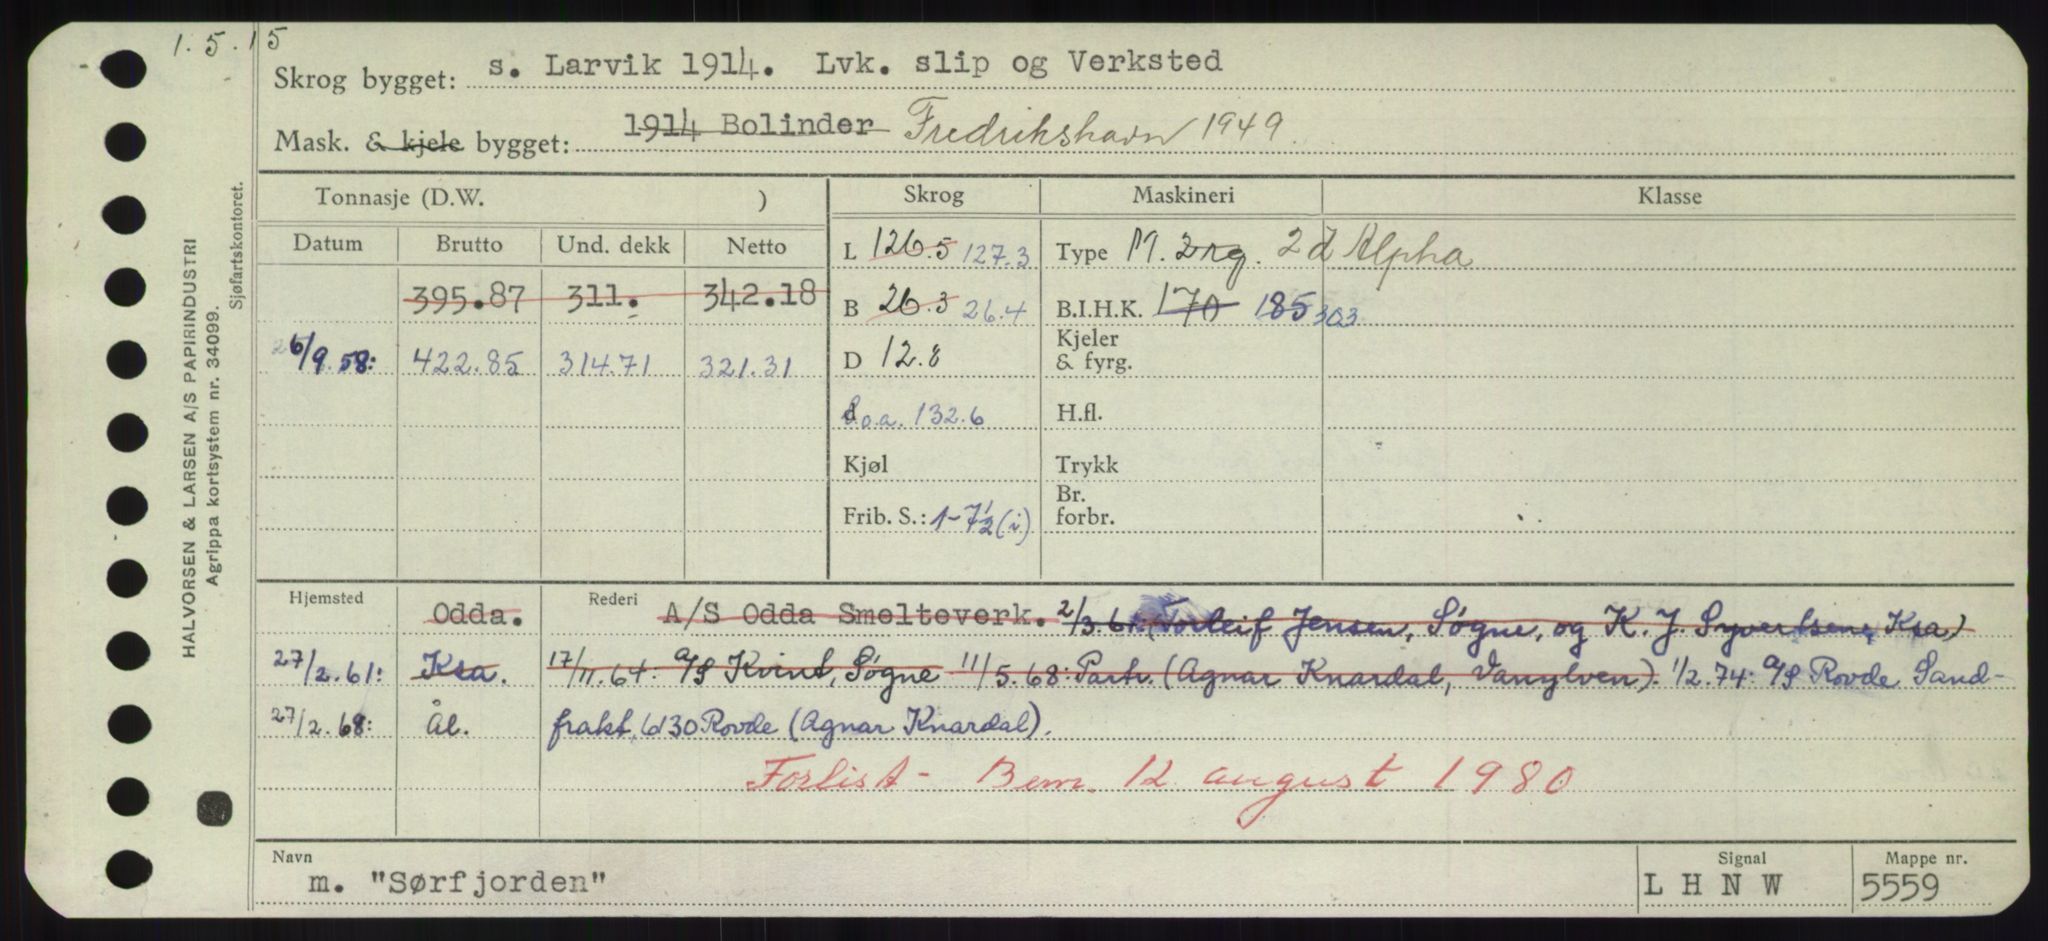 1.5.15
Skrog bygget: s. Larvik 1914. Lvk. slip og Verksted
Mask. & kjele bygget: 1914 Bolinder Fredrikshavn 1949
Tonnasje (D.W. ) Skrog Maskineri Klasse
Datum Brutto Und. dekk Netto
L 126.5 127.3 Type M. 2 rg. 2 d Alpha
395.87 311. 342.18 B 26.3 26.4 B.I.H.K. 170 185 303
26/9.58: 422.85 314.71 321.31 D 12.8 Kjeler & fyrg.
d l.o.a. 132.6 H.fl.
Kjøl Trykk
Frib. S.: 1-7½ (i) Br. forbr.
Hjemsted Odda. Rederi A/S Odda Smelteverk. 2/3.61: (Torleif Jensen, Søgne, og K. J. Syvertsen, Ksa)
27/2.61: Ksa. 17/11.64: A/S Kvint, Søgne 11/5.68: Partr. (Agnar Knardal, Vanylven). 1/2.74: A/S Rovde Sand-
27/2.68: Ål. frakt, 6130 Rovde (Agnar Knardal).
Forlist - Bem. 12 august 1980
Navn Signal Mappe nr.
m. "Sørfjorden" L H N W 5559
HALVORSEN & LARSEN A/S PAPIRINDUSTRI
Agrippa kortsystem nr. 34099.
Sjøfartskontoret.